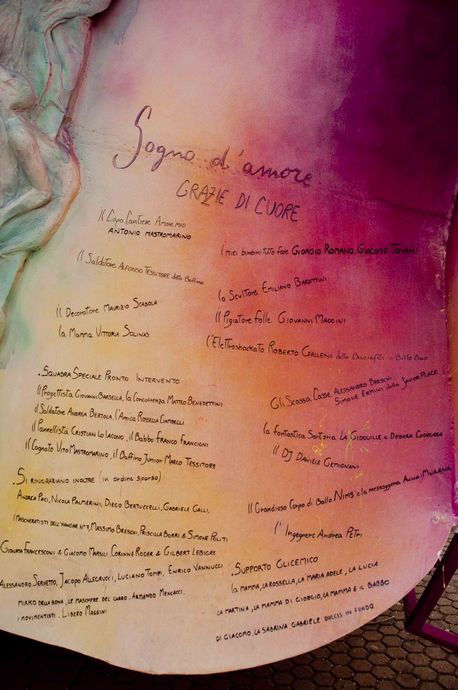 Sogno d'amore
GRAZIE DI CUORE
Il Capo Cantiere Amore mio
ANTONIO MASTROMARINO
I miei bimbini tutto fare GIORGIO ROMANO, GIACOMO TOVANI
Il Saldatore ALFONSO TESSITORE detto Baffino
Lo Scultore EMILIANO BARETTINI
Il Decoratore MAURIZIO SCASOLA
Il Pigiatore Folle GIOVANNI MAGGINI
La Mamma VITTORIA SOLINAS
L'Elettroshockato ROBERTO CEALLENI detto
. SQUADRA SPECIALE PRONTO INTERVENTO
Gli Scassa Casse ALESSANDRO BRESCHI
SIMONE ERMINI della SAVOIR PLACE
Il Progettista GIOVANNI BARSELLA, la CONCORRENZA MATTEO BENEDETTINI
Il Saldatore ANDREA BERTOLA, l'Amica ROSSELLA CIMBELLI
La fantastica Sartoria LA GIDOUILLE e DEBORA CODECASA
Il Pannellista CRISTIAN LO IACONO, il Babbo FRANCO FRANCIONI
Il DJ DANIELE GEMIGNANI
Il Cognato VITO MASTROMARINO, il Baffino JUNIOR MARCO TESSITORE
. SI RINGRAZIANO INOLTRE (in ordine sparso)
Il Grandioso Corpo di Ballo NIMS e la messaggera ANNA MURANA
ANDREA PACI, NICOLA PALMERINI, DIEGO BERTUCCELLI, GABRIELE GALLI,
L'Ingegnere ANDREA PETRI
I MASCHERATISTI DELL'HANGAR N°3, MASSIMO BRESCHI, PRISCILLA BORRI & SIMONE POLITI
GIONATA FRANCESCONI & GIACOMO MARSILI, CORINNE ROGER & GILBERT LEBIGRE
. SUPPORTO GLICEMICO
ALESSANDRO SERVETTO, JACOPO ALLEGRUCCI, LUCIANO TOMEI, ENRICO VANNUCCI
LA MAMMA, LA ROSSELLA, LA MARIA ADELE, LA LUCIA
MIRKO DELLA BONA, LE MASCHERE DEL CARRO, ARMANDO MENCACCI,
LA MARTINA, LA MAMMA DI GIORGIO, LA MAMMA E IL BABBO
I MOVIMENTISTI, LIBERO MAGGINI
DI GIACOMO, LA SABRINA GABRIELE DULCIS IN FUNDO